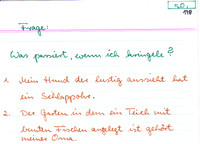 50.
118
Frage:
Was passiert, wenn ich kringele?
1. Mein Hund der lustig aussieht hat
ein Schlappohr.
2. Der Garten in dem ein Teich mit
bunten Fischen angelegt ist gehört
meiner Oma.